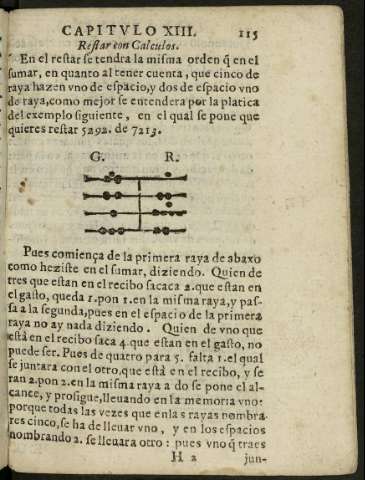 CAPITVLO XIII. 115
Restar con Calculos.
En el restar se tendra la misma orden q̃ en el
sumar, en quanto al tener cuenta, que cinco de
raya hazen vno de espacio, y dos de espacio vno
de raya, como mejor se entendera por la platica
del exemplo siguiente, en el qual se pone que
quieres restar 5292. de 7213.
G. R.
Pues comiença de la primera raya de abaxo
como heziste en el sumar, diziendo. Quien de
tres que estan en el recibo sacaca 2. que estan en
el gasto, queda 1. pon 1. en la misma raya, y pas-
sa a la segunda, pues en el espacio de la primera
raya no ay nada diziendo. Quien de vno que
està en el recibo saca 4. que estan en el gasto, no
puede ser. Pues de quatro para 5. falta 1. el qual
se juntara con el otro, que està en el recibo, y se
ran 2. pon 2. en la misma raya a do se pone el al-
cance, y prosigue, lleuando en la memoria vno:
porque todas las vezes que enlas rayas nombra
res cinco, se ha de lleuar vno, y en los espacios
nombrando 2. se lleuara otro: pues vno q̃ traes
H 2 jun-